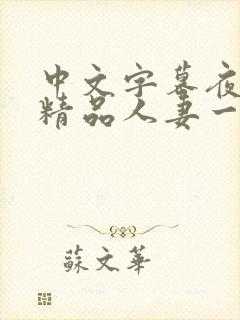 中文字幕夜
精品人妻一
蘇文華